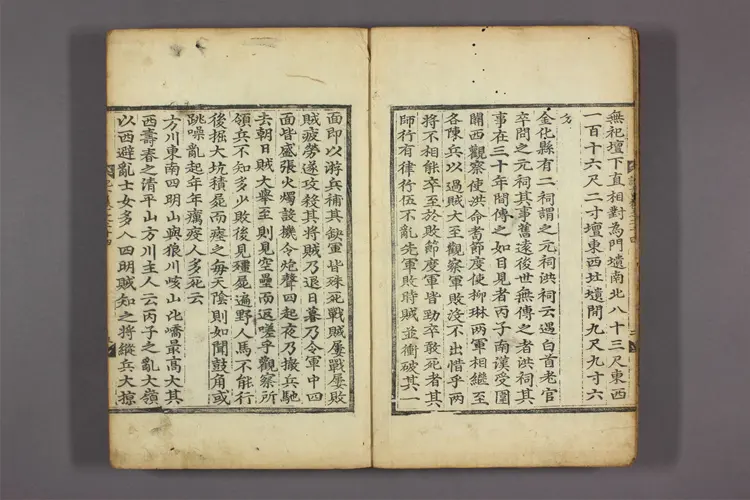 無祀壇下直相對為門壝南北八十三尺東西
一百十六尺二寸壇東西壯壝間九尺九寸六
金化縣有二祠謂之元祠洪祠云遇白首老官
卒問之元祠其事舊遠後世無傳之者洪祠其
事在三十年間傳之如目見者丙子南漢受圍
關西觀察使洪命耉節度使柳琳两軍相繼至
各陳兵以過賊大至觀察軍敗沒不出惜乎两
將不相能卒至於敗節度軍皆勁卒敢死者其
師行有律行伍不亂先軍敗時賊並衝破其一
面即以游兵補其缺軍皆殊死戰賊屢戰屢敗
賊疲勞遂攻殺其將賊乃退日暮乃令軍中四
面皆盛張火燭設機令炮聲四起夜乃撤兵馳
去朝日賊大擧至則見空壘而返嗟乎觀察所
領兵不知多少敗後見殭屍遍野人馬不能行
後掘大坑積屍而瘞之每天陰則如聞鼓角或
跳噪亂起年年癘疫人多死云
方川東南四明山與狼川咳山北嶠最高大其
西壽春之清平山方川主人云丙子之亂大嶺
以西避亂士女多入四明賊知之將縱兵大掠